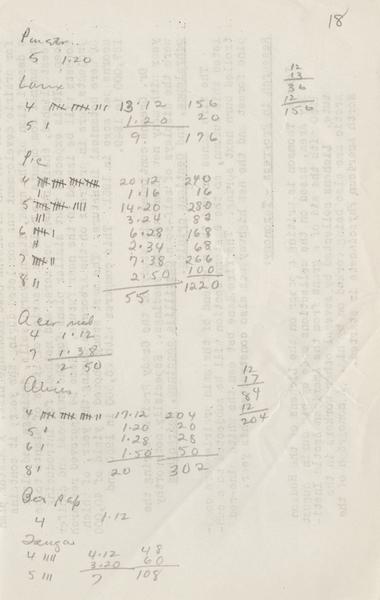 18
5 1.20
12
13
36
12
156
Larix
4 𝍸 𝍸 III 13.12 156
5 I 1.20 20
9. 176
Pic
4 𝍸 𝍸 𝍸 𝍸 20.12 240
I 1.16 16
5 𝍸 𝍸 IIII 14.20 280
III 3.24 82
6 𝍸 I 6.28 168
II 2.34 68
7 𝍸 II 7.38 266
8 II 2.50 100
55 1220
Acer
4 1.12
7 1.38
2 50
12
17
84
12
204
Abies
4 𝍸 𝍸 𝍸 II 17.12 204
5 I 1.20 20
6 I 1.28 28
8 I 1.50 50
20 302
Bet pap
4 1.12
Tsuga
4 IIII 4.12 48
5 III 3.20 60
7 108